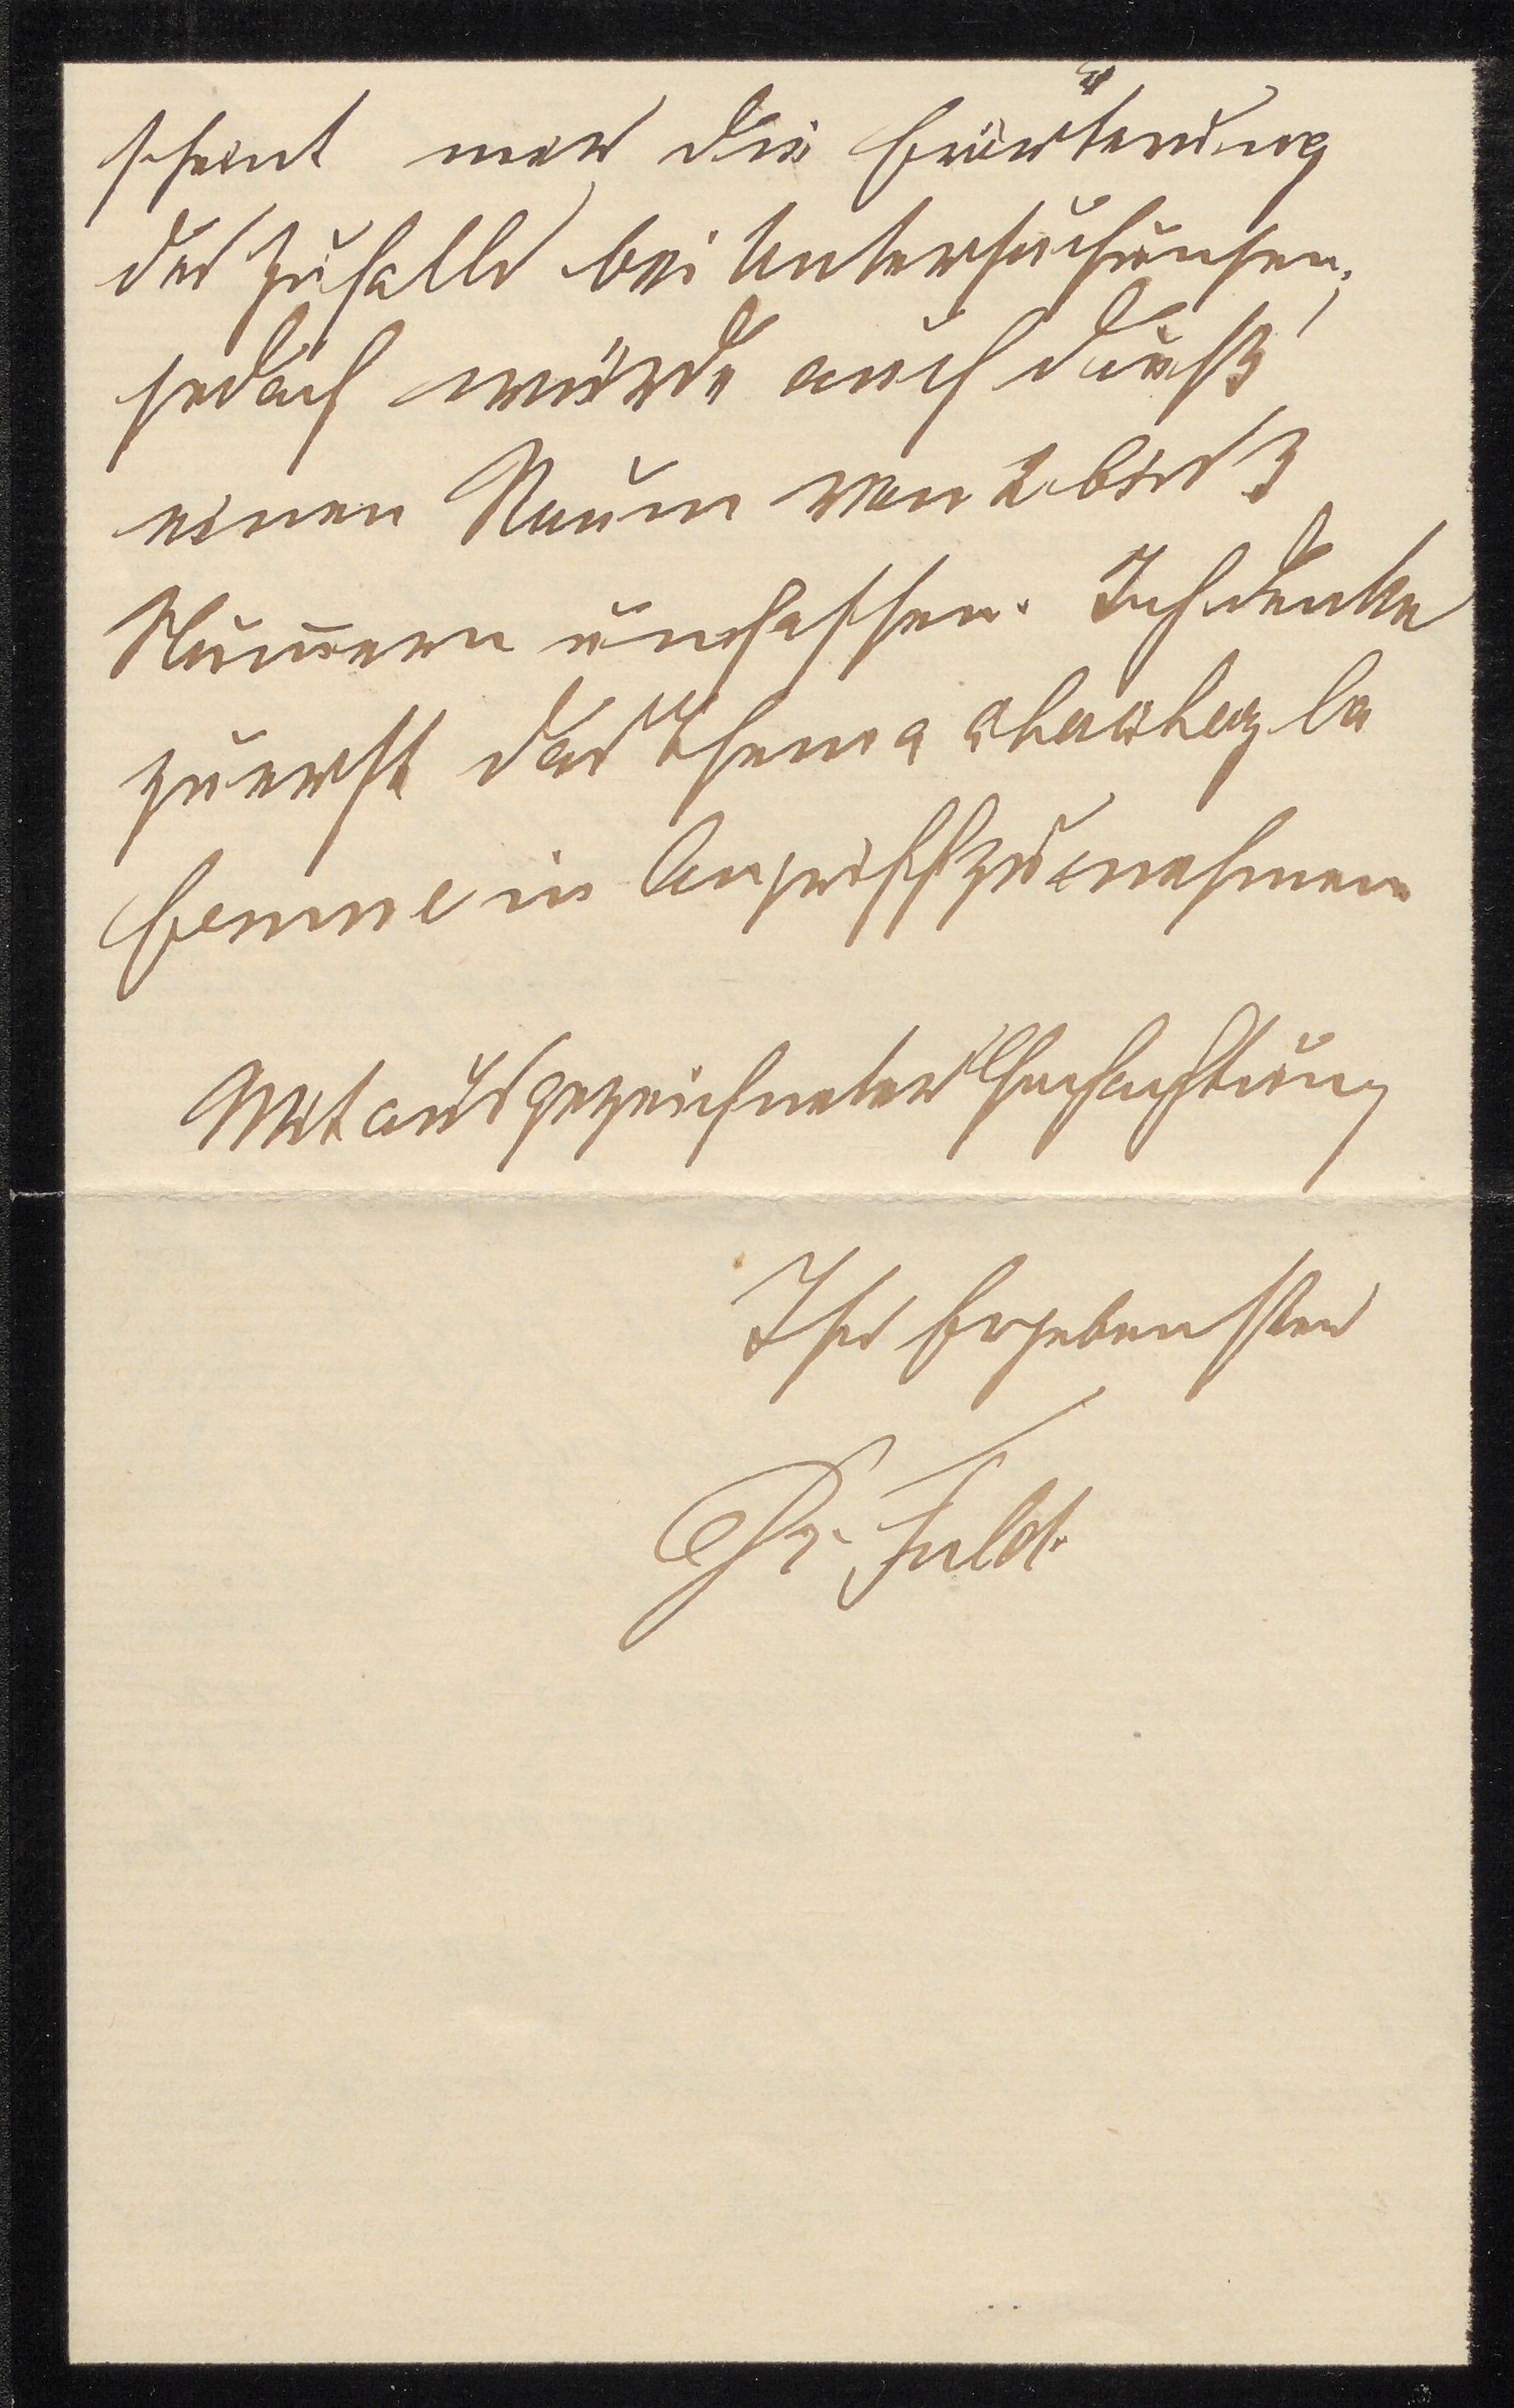 scheint mir die Erörterung
des Zufalls bei Untersuchungen,
jedoch würde auch dieß
einen Raum von 2 bis 3
Nummern umfassen. Ich denke
zuerst das Thema cherchez la
femme in Angriff zu nehmen
Mit ausgezeichneter Hochachtung
Ihr Ergebenster
Dr. Fuld.